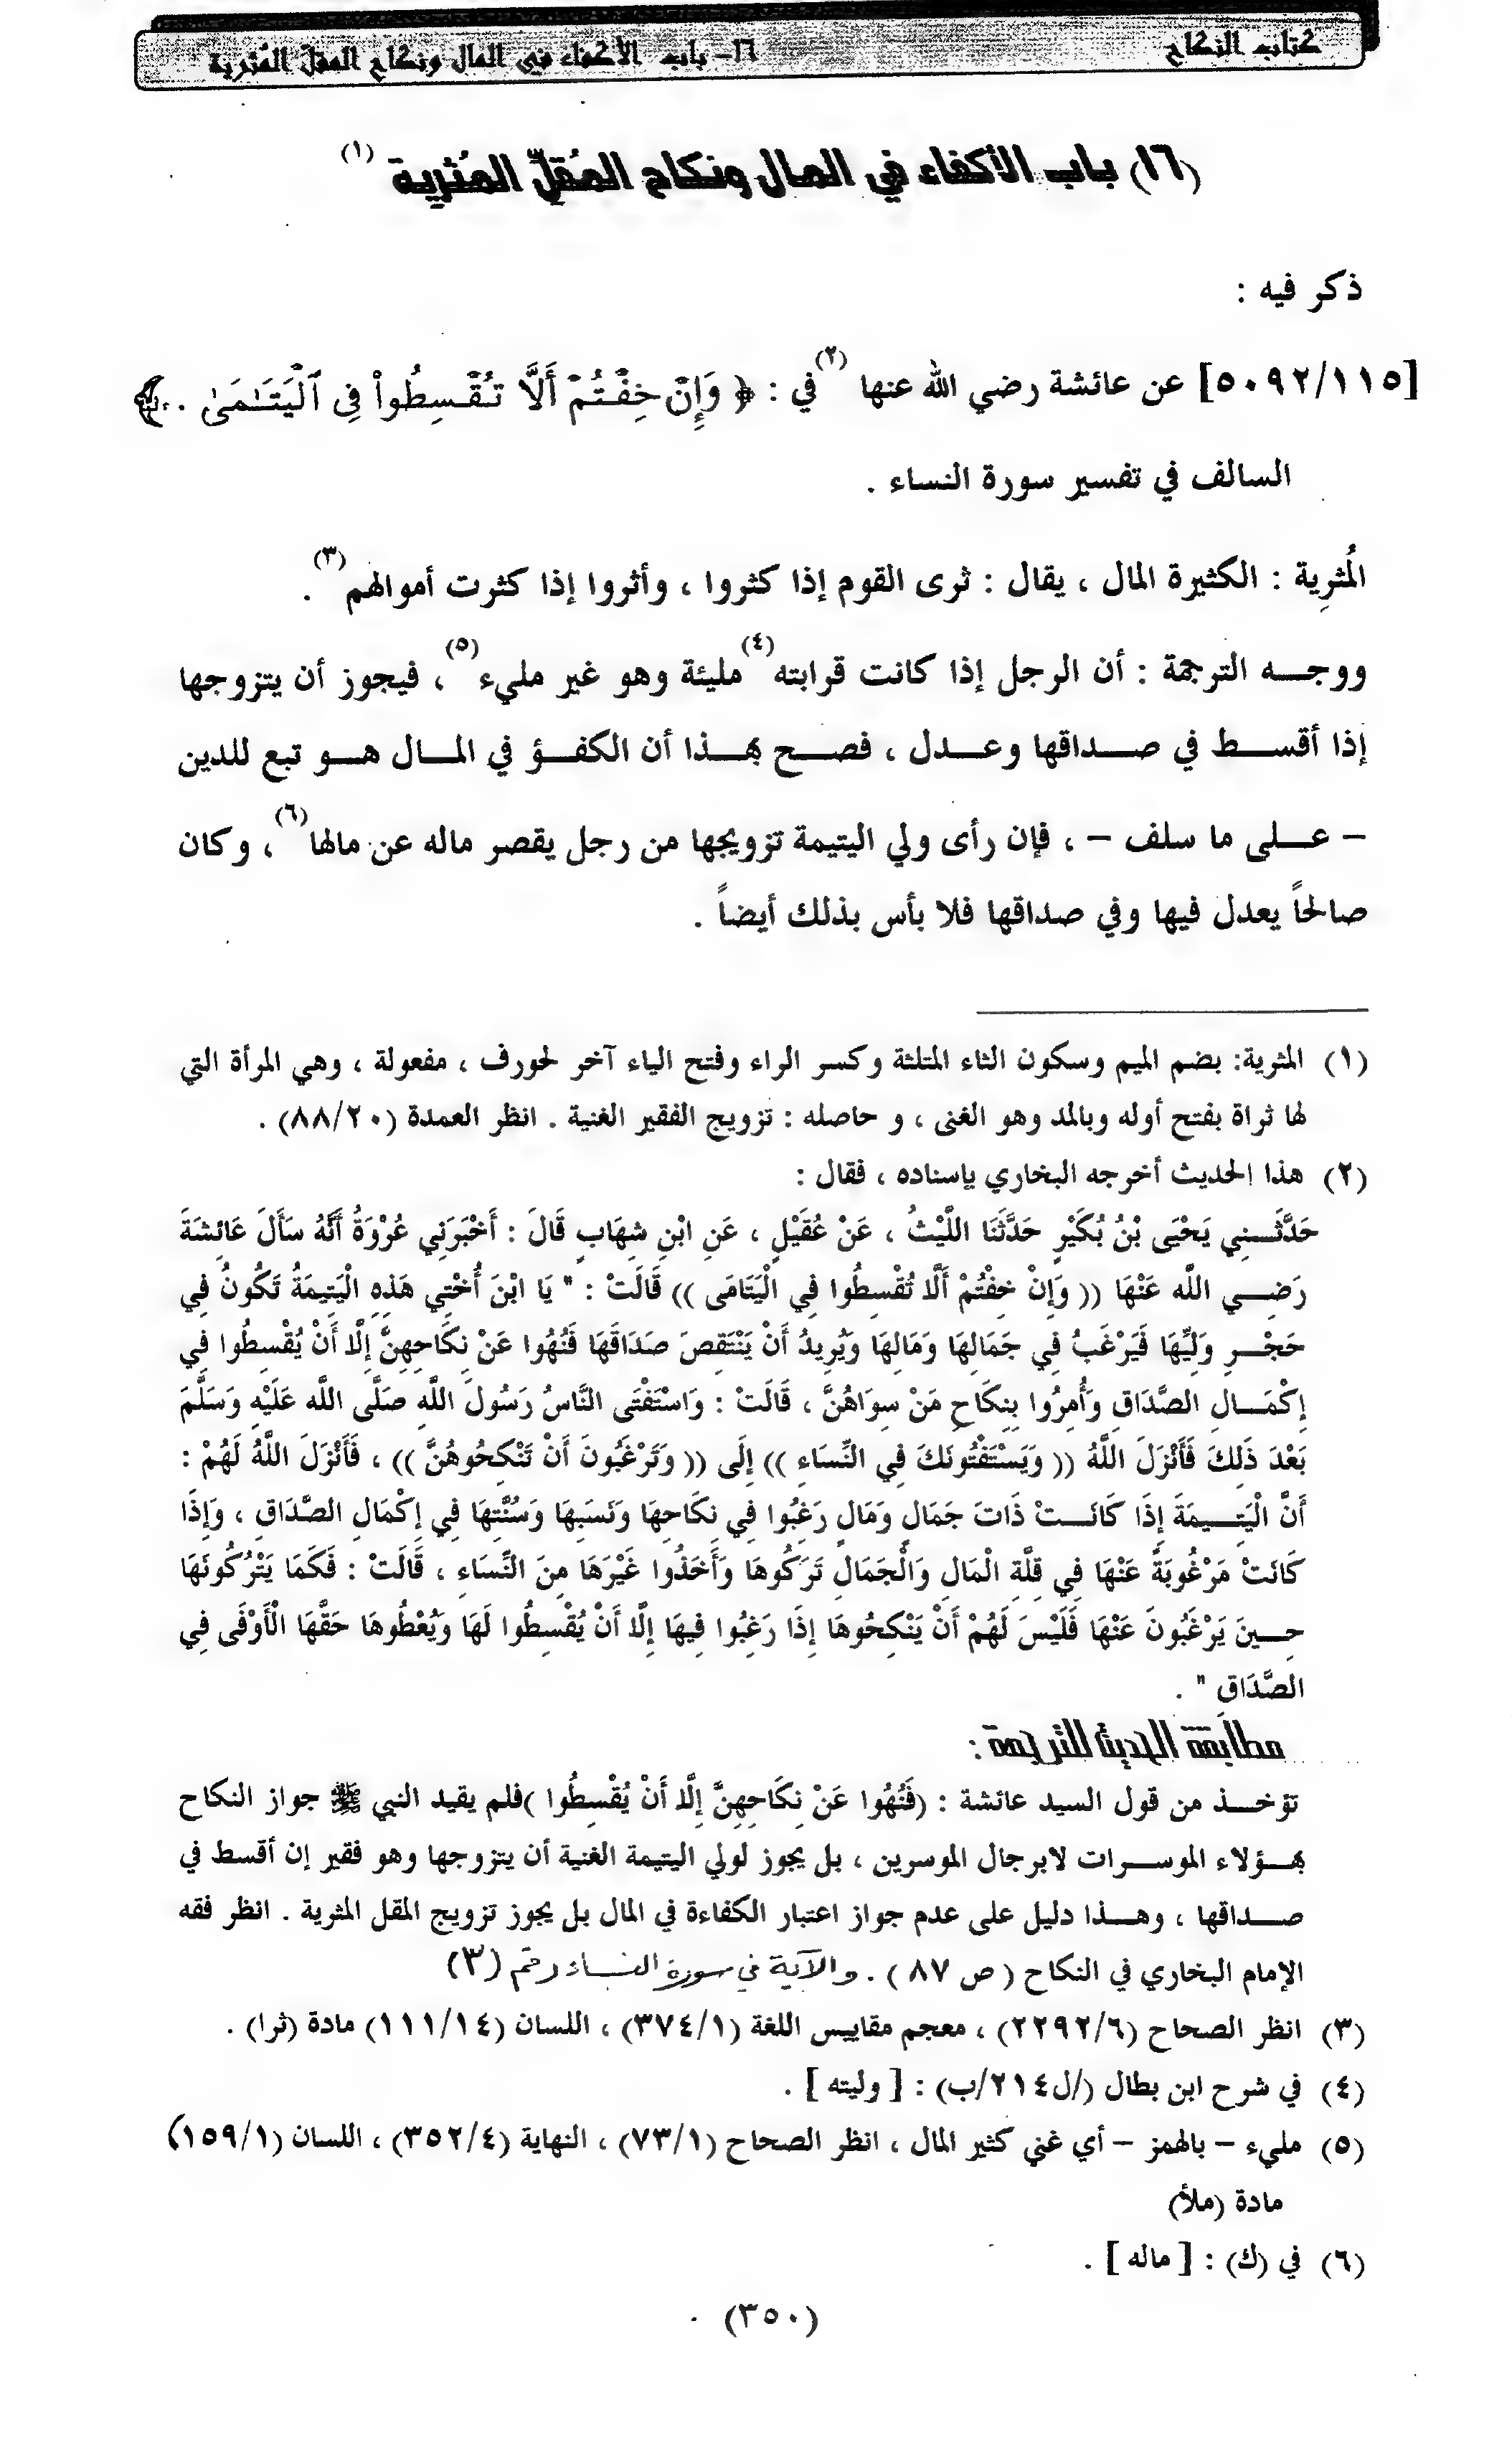 كتاب النكاح
١٦- باب الأكفاء في المال ونكاح المقل المثرية
(١٦) باب الأكفاء في المال ونكاح المُقلِّ المُثرية (١)
ذكر فيه :
[٥٠٩٢/١١٥] عن عائشة رضي الله عنها (٢) في : ﴿ وَإِنْ خِفْتُمْ أَلَّا تُقْسِطُواْ فِى ٱلْيَتَـٰمَىٰ ..﴾
السالف في تفسير سورة النساء .
المُثرِية : الكثيرة المال ، يقال : ثرى القوم إذا كثروا ، وأثروا إذا كثرت أموالهم (٣) .
ووجه الترجمة : أن الرجل إذا كانت قرابته (٤) مليئة وهو غير مليء (٥) ، فيجوز أن يتزوجها
إذا أقسط في صداقها وعدل ، فصح بهذا أن الكفؤ في المال هو تبع للدين
– على ما سلف – ، فإن رأى ولي اليتيمة تزويجها من رجل يقصر ماله عن مالها (٦) ، وكان
صالحاً يعدل فيها وفي صداقها فلا بأس بذلك أيضاً .
(١) المثرية: بضم الميم وسكون الثاء المثلثة وكسر الراء وفتح الياء آخر لحورف ، مفعولة ، وهي المرأة التي
لها ثراة بفتح أوله وبالمد وهو الغنى ، و حاصله : تزويج الفقير الغنية . انظر العمدة (٨٨/٢٠) .
(٢) هذا الحديث أخرجه البخاري بإسناده ، فقال :
حَدَّثَنِي يَحْيَى بْنُ بُكَيْرٍ حَدَّثَنَا اللَّيْثُ ، عَنْ عُقَيْلٍ ، عَنِ ابْنِ شِهَابٍ قَالَ : أَخْبَرَنِي عُرْوَةُ أَنَّهُ سَأَلَ عَائِشَةَ
رَضِي اللَّه عَنْهَا (( وَإِنْ خِفْتُمْ أَلَّا تُقْسِطُوا فِي الْيَتَامَى )) قَالَتْ : " يَا ابْنَ أُخْتِي هَذِهِ الْيَتِيمَةُ تَكُونُ فِي
حَجْرِ وَلِيِّهَا فَيَرْغَبُ فِي جَمَالِهَا وَمَالِهَا وَيُرِيدُ أَنْ يَنْتَقِصَ صَدَاقَهَا فَنُهُوا عَنْ نِكَاحِهِنَّ إِلَّا أَنْ يُقْسِطُوا فِي
إِكْمَالِ الصَّدَاقِ وَأُمِرُوا بِنِكَاحِ مَنْ سِوَاهُنَّ ، قَالَتْ : وَاسْتَفْتَى النَّاسُ رَسُولَ اللَّهِ صَلَّى اللَّه عَلَيْهِ وَسَلَّمَ
بَعْدَ ذَلِكَ فَأَنْزَلَ اللَّهُ (( وَيَسْتَفْتُونَكَ فِي النِّسَاءِ )) إِلَى (( وَتَرْغَبُونَ أَنْ تَنْكِحُوهُنَّ )) ، فَأَنْزَلَ اللَّهُ لَهُمْ :
أَنَّ الْيَتِيمَةَ إِذَا كَانَتْ ذَاتَ جَمَالٍ وَمَالٍ رَغِبُوا فِي نِكَاحِهَا وَنَسَبِهَا وَسُنَّتِهَا فِي إِكْمَالِ الصَّدَاقِ ، وَإِذَا
كَانَتْ مَرْغُوبَةً عَنْهَا فِي قِلَّةِ الْمَالِ وَالْجَمَالِ تَرَكُوهَا وَأَخَذُوا غَيْرَهَا مِنَ النِّسَاءِ ، قَالَتْ : فَكَمَا يَتْرُكُونَهَا
حِينَ يَرْغَبُونَ عَنْهَا فَلَيْسَ لَهُمْ أَنْ يَنْكِحُوهَا إِذَا رَغِبُوا فِيهَا إِلَّا أَنْ يُقْسِطُوا لَهَا وَيُعْطُوهَا حَقَّهَا الْأَوْفَى فِي
الصَّدَاقِ " .
مطابقة الحديث للترجمة :
تؤخذ من قول السيد عائشة : (فَنُهُوا عَنْ نِكَاحِهِنَّ إِلَّا أَنْ يُقْسِطُوا )فلم يقيد النبي ﷺ جواز النكاح
بهؤلاء الموسرات لابرجال الموسرين ، بل يجوز لولي اليتيمة الغنية أن يتزوجها وهو فقير إن أقسط في
صداقها ، وهذا دليل على عدم جواز اعتبار الكفاءة في المال بل يجوز تزويج المقل المثرية . انظر فقه
الإمام البخاري في النكاح ( ص ٨٧ ) . والآية في سورة النساء رقم (٣)
(٣) انظر الصحاح (٢٢٩٢/٦) ، معجم مقاييس اللغة (٣٧٤/١) ، اللسان (١١١/١٤) مادة (ثرا) .
(٤) في شرح ابن بطال (/ل٢١٤/ب) : [ وليته ] .
(٥) مليء – بالهمز – أي غني كثير المال ، انظر الصحاح (٧٣/١) ، النهاية (٣٥٢/٤) ، اللسان (١٥٩/١)
مادة (ملأ)
(٦) في (ك) : [ ماله ] .
(٣٥٠)